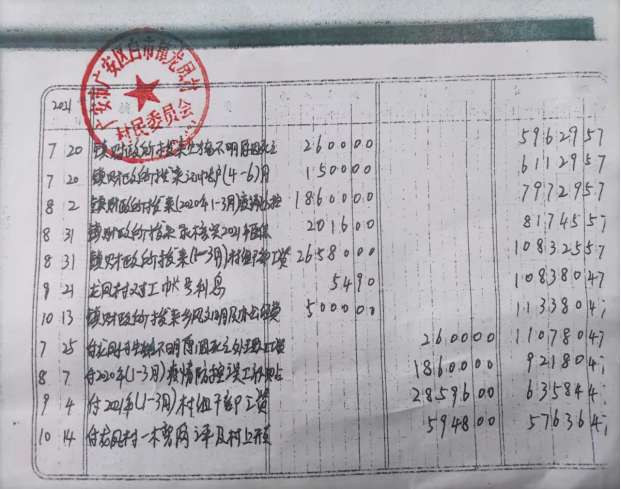 广安市广安区白市镇龙凤村
村民委员会
2021
7 20 镇财政所拨来生猪不明原因死亡 260000 5962957
7 20 镇财政所拨来 (4-6)月 150000 6112957
8 2 镇财政所拨来(2020年1-3月)疫情防控 1860000 7972957
8 31 镇财政所拨来 2021年 201600 8174557
8 31 镇财政所拨来(1-3月)村组干部工资 2658000 10832557
9 21 龙凤村对工帐号利息 5490 10838047
10 13 镇财政所拨来乡风文明及办公经费 500000 1133804
7 25 付龙凤村生猪不明原因死亡处理工资 260000 11078047
8 7 付2020年(1-3月)疫情防控误工补贴 1860000 921804
9 4 付2021年(1-3月)村组干部工资 2859600 635844
10 14 付龙凤村一 两评及村上开支 594800 576364